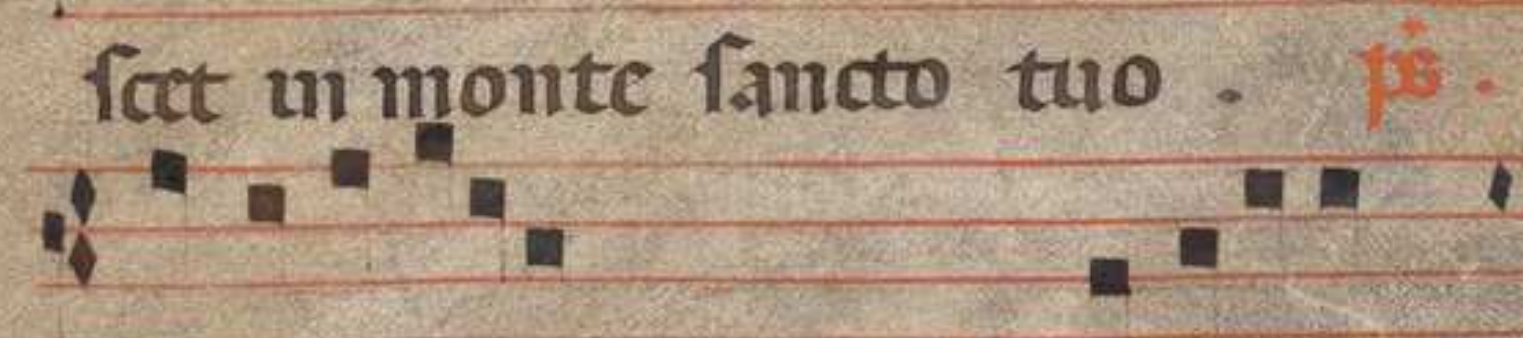 ſcet in monte ſancto tuo . ps .